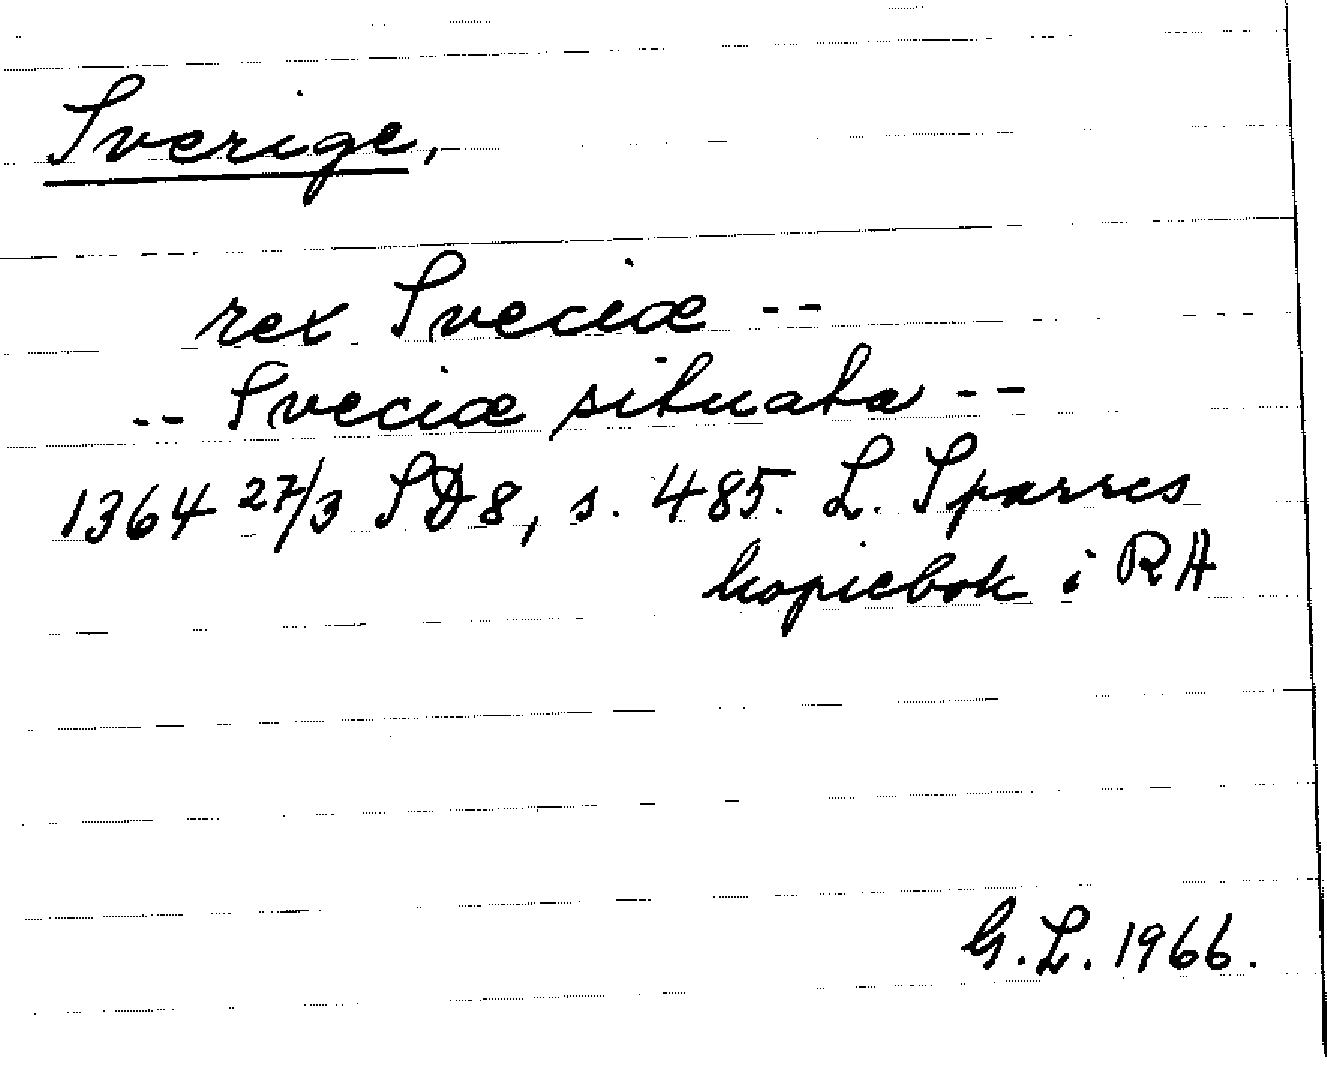 Sverige,
rex Sveciæ --
-- Sveciæ situata --
1364 27/3 SD 8, s. 485. L. Sparres
kopiebok i RA
G.L. 1966.